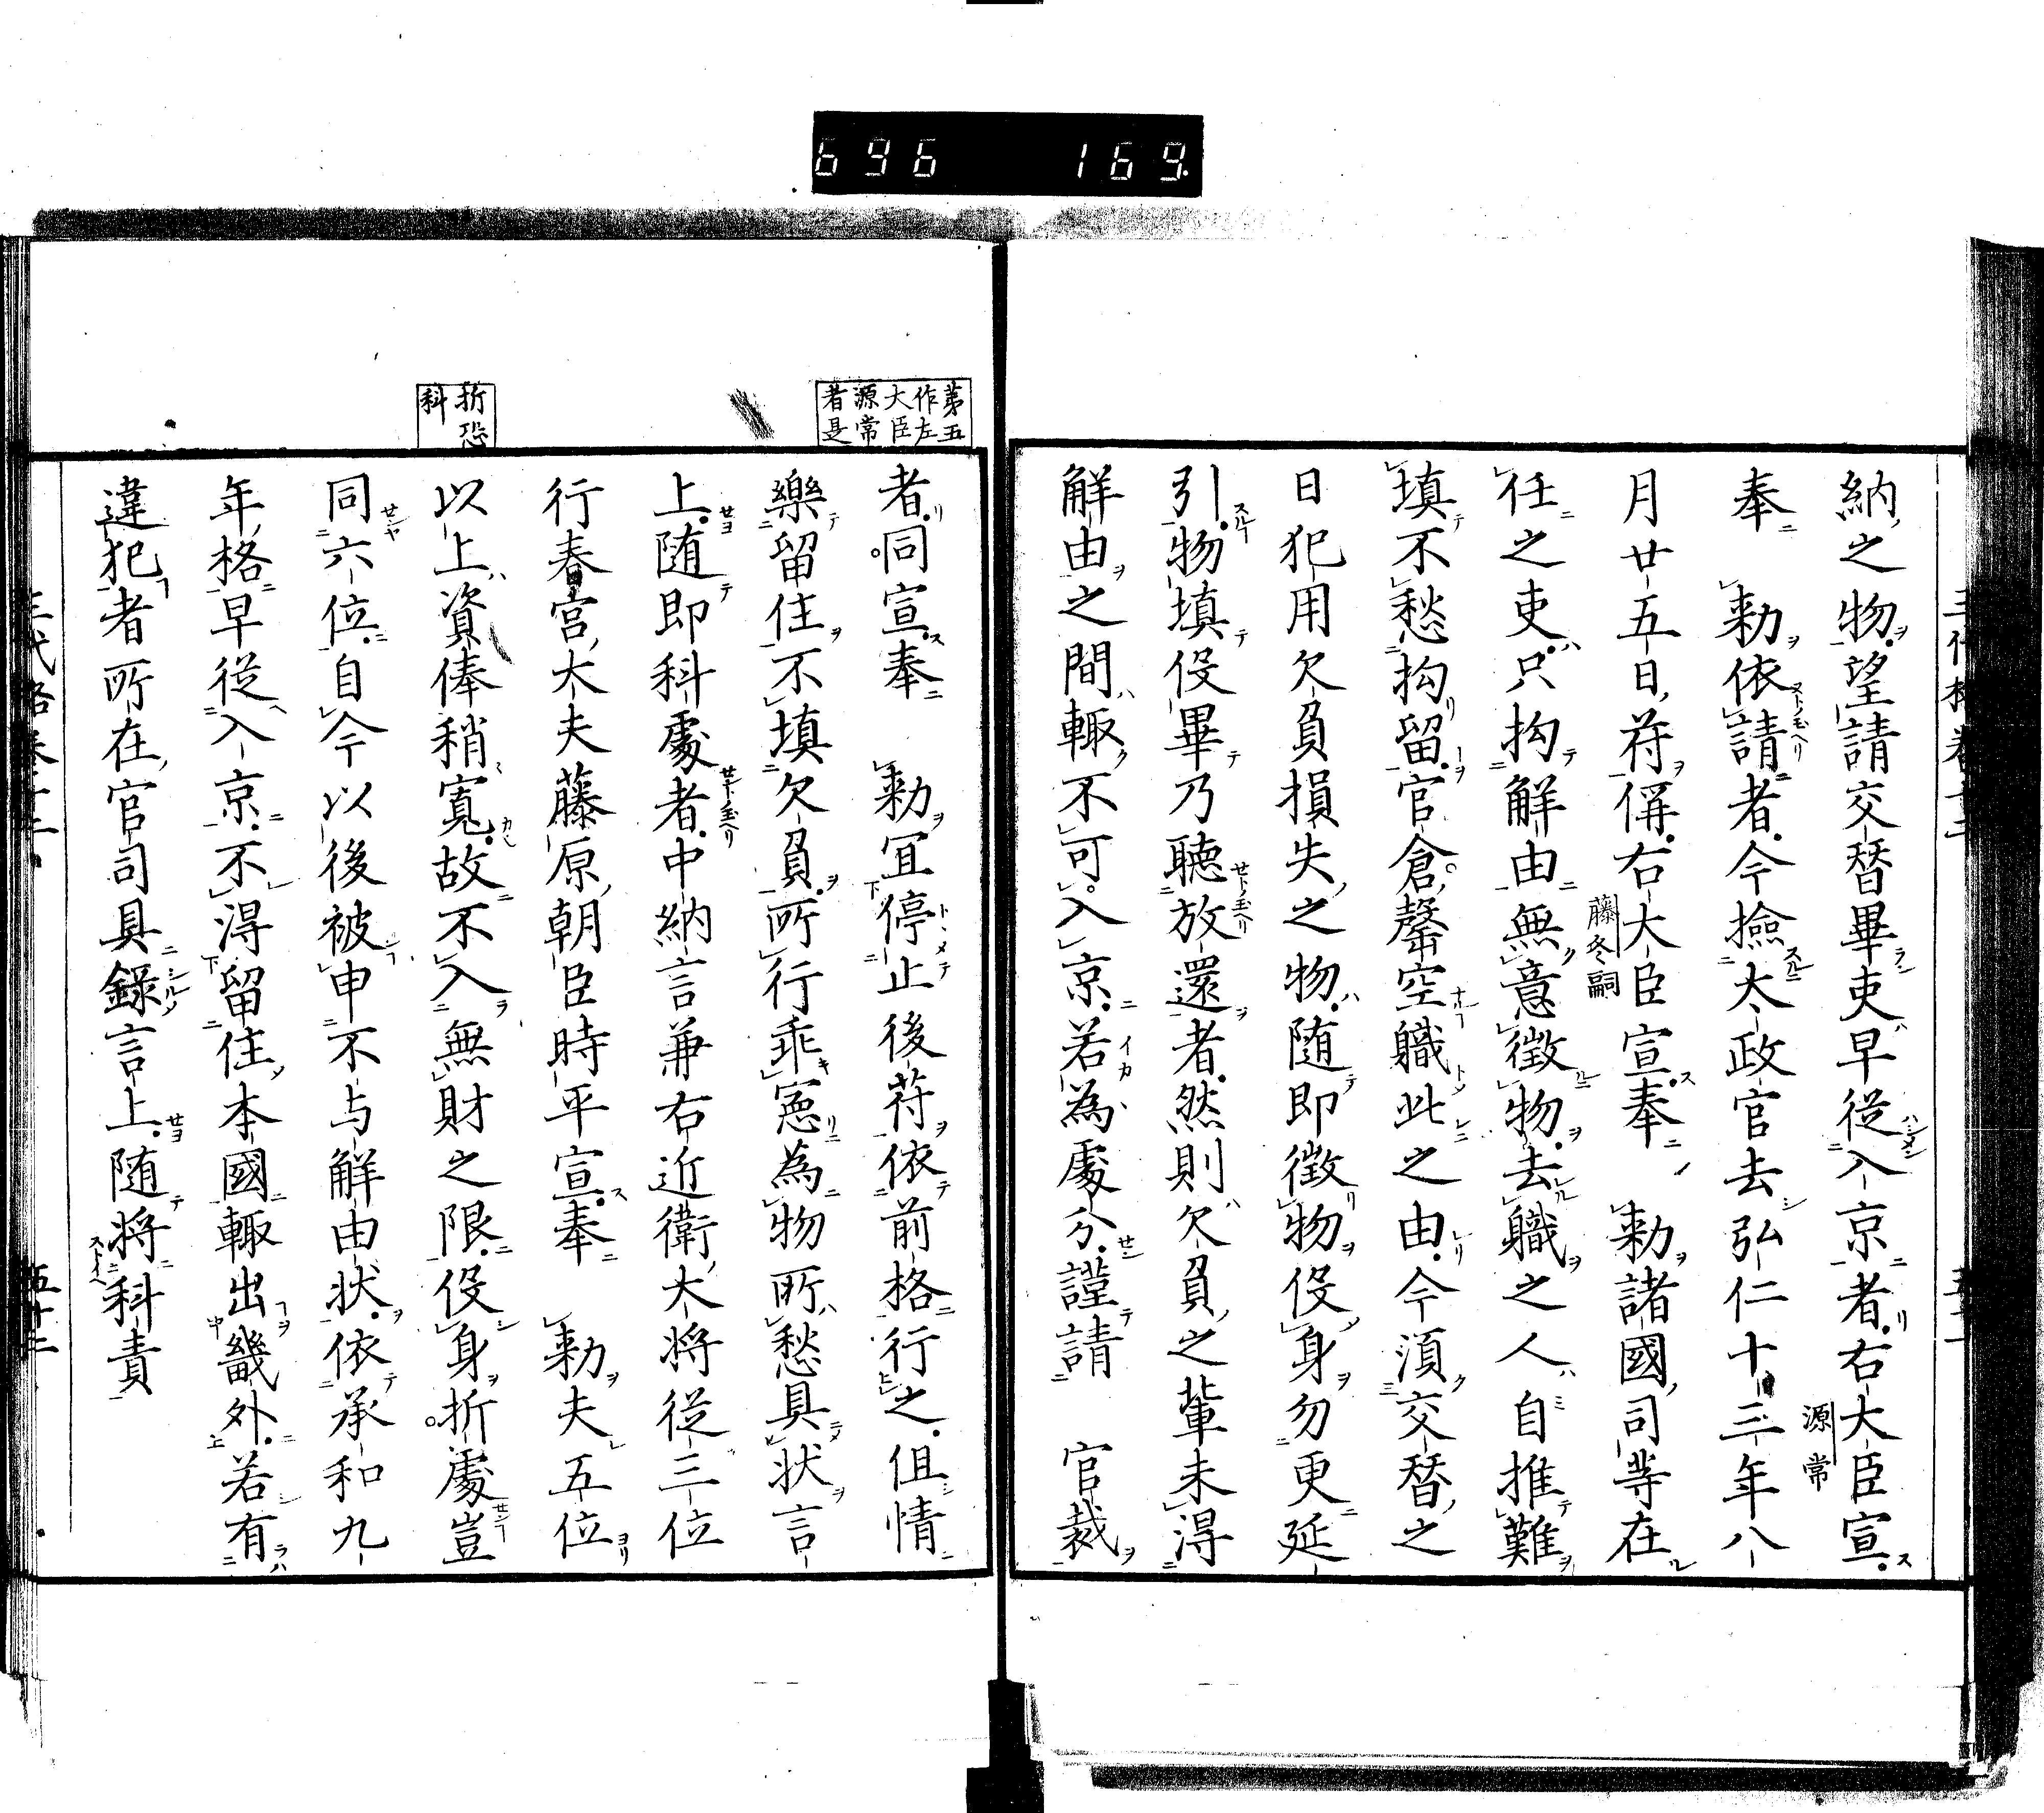 696 169
納之物望請交替畢吏早從入京者右大臣宣
源常
奉 勅依請者今撿太政官去弘仁十三年八
月廿五日符偁右大臣宣奉 勅諸國司等在
藤冬嗣
任之吏只拘解由無意徴物去職之人自推難
填不愁拘留官倉罄空職此之由今須交替之
日犯用欠負損失之物随即徴物役身勿更延
引物填役畢乃聴放還者然則欠負之輩未得
解由之間輙不可入京若為處分謹請 官裁
第五
作左
大臣
源常
者是
者同宣奉 勅宜停止後符依前格行之但情
樂留住不填欠負所行乖憲為物所愁具状言
上随即科處者中納言兼右近衛大将從三位
行春宮大夫藤原朝臣時平宣奉 勅夫五位
以上資俸稍寛故不入無財之限役身折處豈
折恐
科
同六位自今以後被申不与解由状依承和九
年格早從入京不得留住本國輙出畿外若有
違犯者所在官司具錄言上随将科責